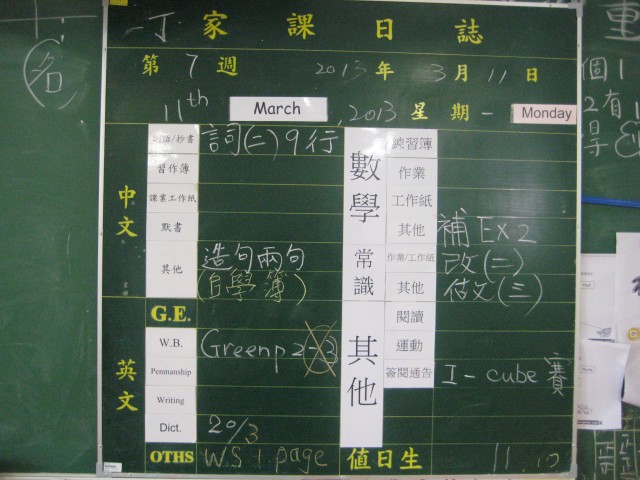 一丁 家課日誌
第 7 週 2013 年 3 月 11 日
11th March, 2013 星期一 Monday
中文
詞語/抄書 詞(二) 9行
習作簿
課業工作紙
默書
其他 造句兩句
(自學簿)
G.E.
英文
W.B. Green p 2-3
Penmanship
Writing
Dict. 20/3
OTHS WS 1 page
數學
練習簿
作業
工作紙
其他 補 Ex 2
常識
作業/工作紙 改(二)
其他 做文(三)
其他
閱讀
運動
簽閱通告 I-cube 賽
值日生 11. 10
名
個1
2有
得